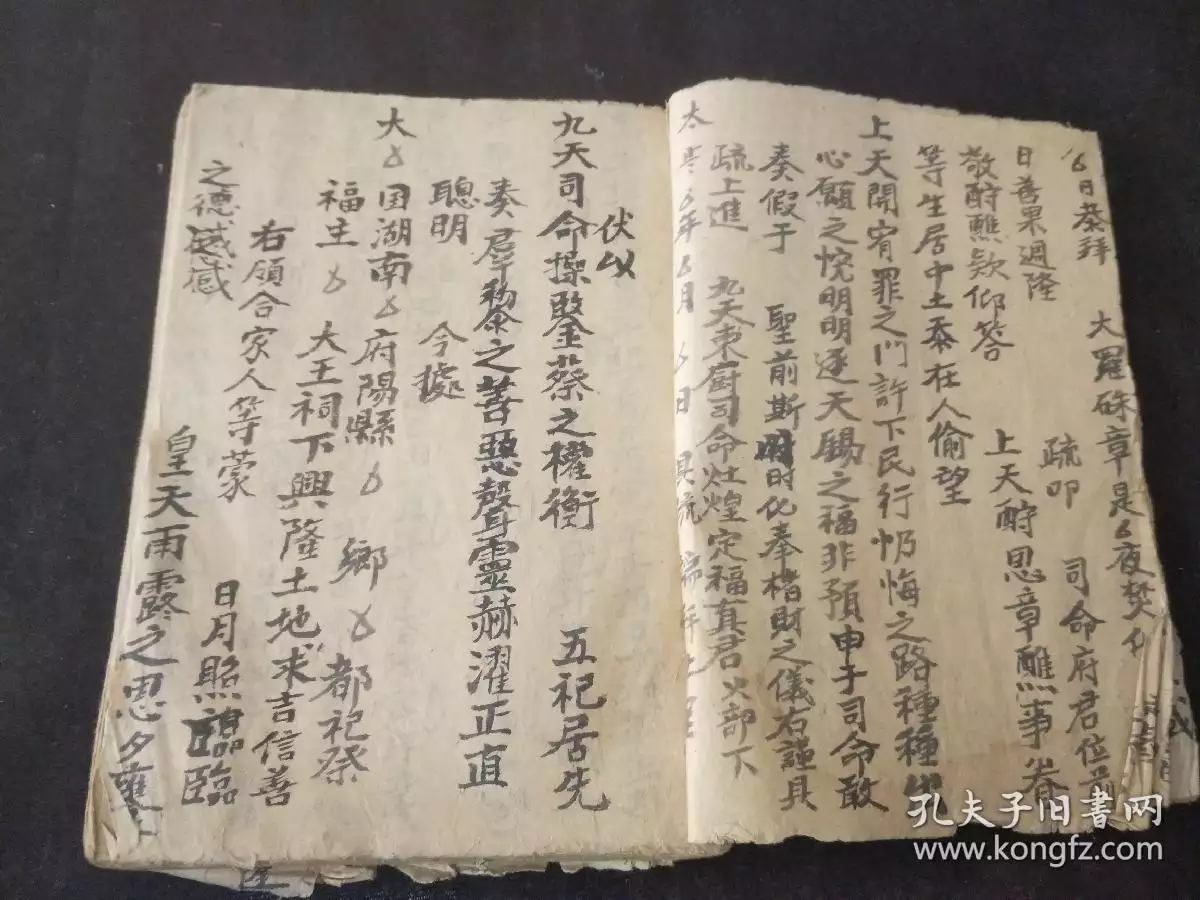 大羅硃章是夜焚化
日恭拜 疏叩 司命府君位前
日善果週隆 上天酧恩章醮事眷
敬酧醮欵仰答
等生居中土忝在人偷望
上天開宥罪之门許下民行忏悔之路種種出
心願之悦明明逐天賜之福非預申于司命敢
奏假于 聖前斯時化奉楮財之儀右謹具
疏上進 九天東厨司命灶煌定福真君火部下
太 年 月 日具疏
伏以
九天司命操鑒蔡之權衡 五祀居先
奏群黎之善惡聲靈赫濯正直
聰明 今據
大 国湖南 府陽縣 鄉 都祀祭
福主 大王祠下興隆土地求吉信善
右領合家人等蒙 日月照臨臨
之德感感 皇天雨露之恩夕
孔夫子旧書网
www.kongfz.com